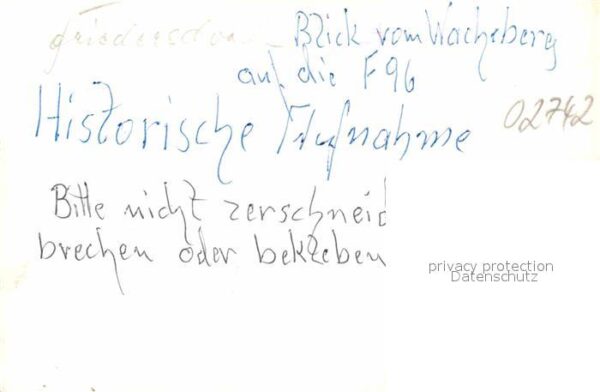 Friedersdorf Blick vom Wacheberg
auf die F96
Historische Aufnahme 02742
Bitte nicht zerschneid
brechen oder bekleben
privacy protection
Datenschutz